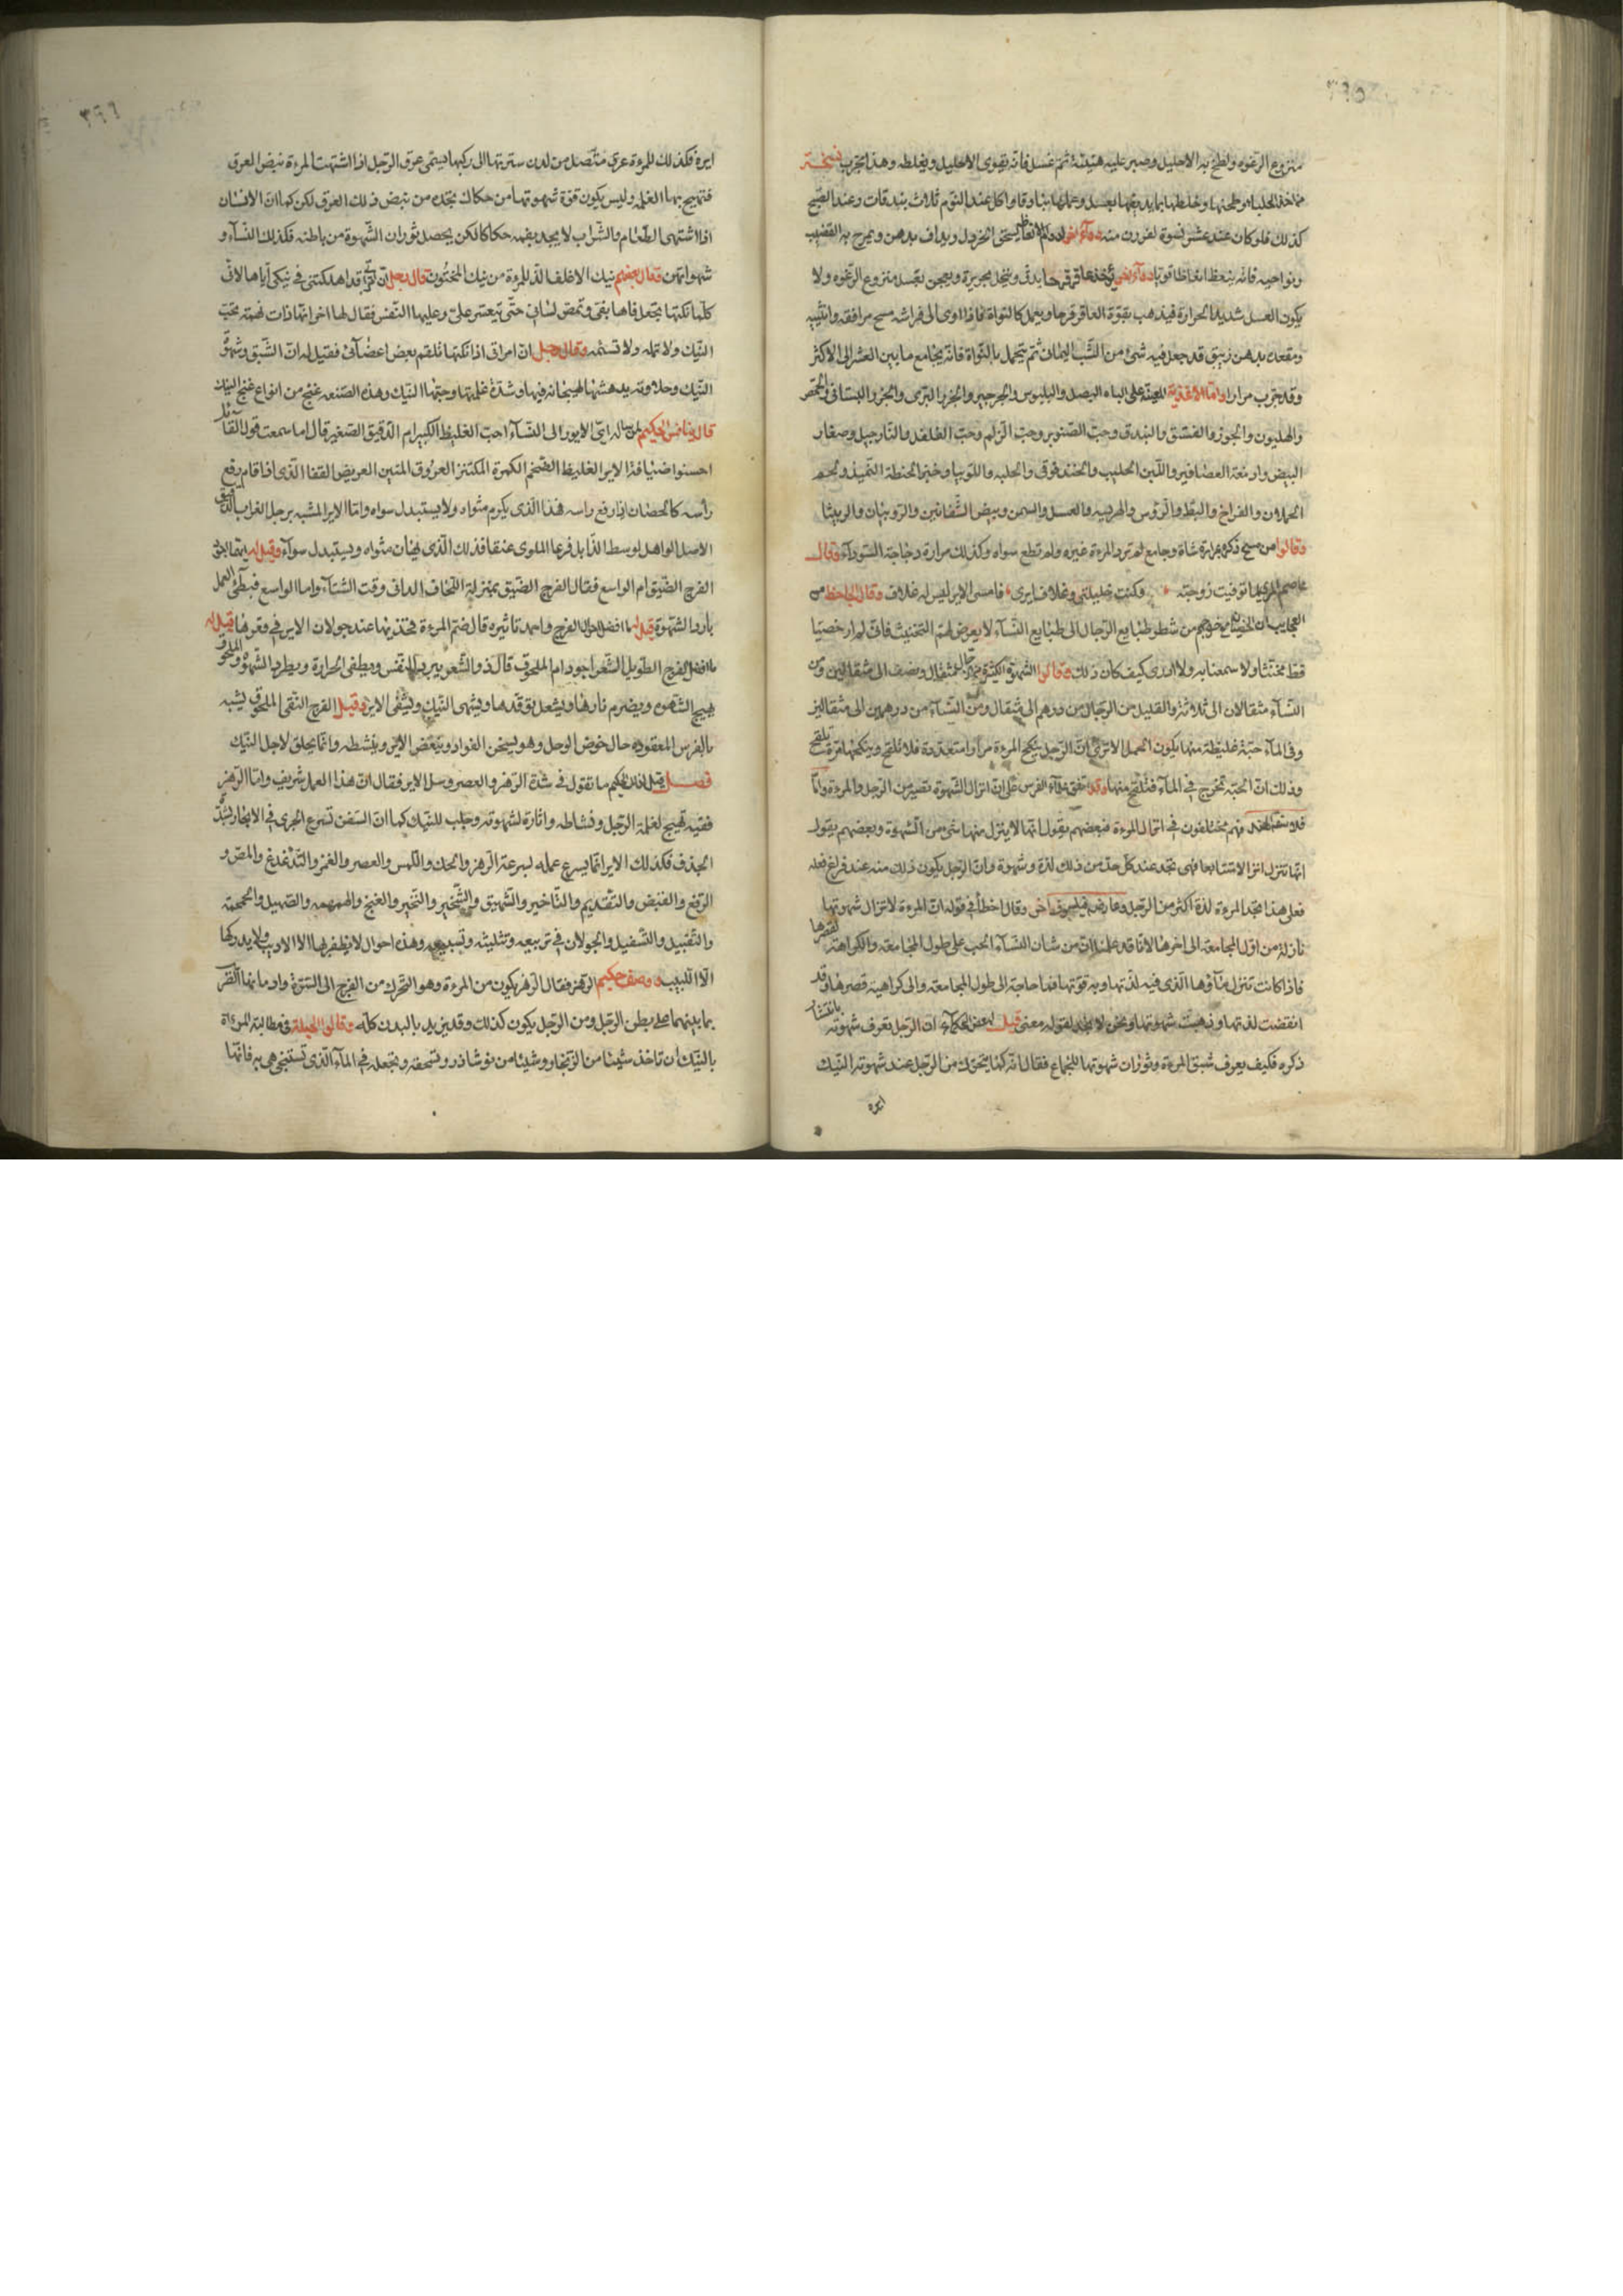 ٣٩٥
منزوع الرغوه ولطخ به الاحليل وصبر عليه هنيئة ثم غسل فانه يقوى الاحليل ويغلظه وهذا مجرب
كذلك فلو كان عنده عشر نسوة لفررن منه دواء اخر يسحق الخردل ويداف بدهن ويمرخ به القضيب
ونواحيه فانه ينعظ انعاظا قويا دواء اخر يؤخذ عاقرقرحا يدق وينخل بحريرة ويعجن بعسل منزوع الرغوه ولا
يكون العسل شديد الحرارة فيذهب بقوة العاقرقرحا ويعمل كالنواة فاذا اوى الى فراشه مسح مرافقه وانثييه
ومقعده بدهن زنبق قد جعل فيه شئ من الشب اليمانى ثم يتحمل بالنواة فانه يجامع ما بين العشر الى الاكثر
وقد جرب مرارا واما الاغذية المعينة على الباه البصل والبلبوس والجرجير والجزر البرى والجزر البستانى والحمص
والهليون والجوز والفستق والبندق وحب الصنوبر وحب الزلم وحب الفلفل والنارجيل وصفار
البيض وادمغة العصافير واللبن الحليب والحندقوقى والحلبه واللوبيا وخبز الحنطة السميذ ولحم
الحملان والفراخ والبط والرؤس والهريسه والعسل والسمن وبيض الشفانين والروبيان والربيثا
وقالوا من مسح ذكره بمرارة شاة وجامع لم ترد المرءة غيره ولم تطع سواه وكذلك مرارة دجاجة السوداء وقال
لما توفيت زوجته وكنت خليلتى وغلاف ايرى فامسى الاير ليس له غلاف وقال الجاحظ من
العجايب ان الخصيان مع خروجهم من شطر طبايع الرجال الى طبايع النساء لا يعرض لهم التخنيث فانى لم ار خصيا
قط مخنثا ولا سمعنا به ولا ادرى كيف كان ذلك وقالوا الشهوة الكثيرة من الرجال مثقال ونصف الى مثقالين ومن
النساء مثقالان الى ثلاثة والقليل من الرجال من درهم الى مثقال ومن النساء من درهمين الى مثقالين
وفى الماء حبة غليظة منها يكون الحمل الا ترى ان الرجل ينكح المرءة مرارا متعددة فلا تلقح وينكحها مرة تلقح
وذلك ان الحبة تخرج فى الماء فتلقح منها وقد اتفق علماء الفرس على ان انزال الشهوة تصير من الرجل والمرءة واما
فلاسفة الهند فهم مختلفون فى انزال المرءة فبعضهم يقول انها لا ينزل منها شئ من الشهوة وبعضهم يقول
انها تنزل انزالا متتابعا فهى تجد عند كل حد من ذلك لذة وشهوة وان الرجل يكون ذلك منه عند فراغ فعله
فعلى هذا تجد المرءة لذة اكثر من الرجل وعارض فيلسوف اخر وقال اخطأ فى قوله ان المرءة لا تزال شهوتها
نازلة من اول المجامعة الى اخرها لانا قد علمنا ان من شان النساء الحب على طول المجامعه والكراهة لقصرها
فاذا كانت تنزل ماؤها الذى فيه لذتها وبه قوتها فما حاجة الى طول المجامعة والى كراهية قصرها وقد
انقضت لذتها وذهبت شهوتها ونحن لا نجد لقوله معنى قيل لبعض الحكماء ان الرجل يعرف شهوته بانتشار
ذكره فكيف يعرف شبق المرءة وثوران شهوتها للجماع فقال انه كما يتحرك من الرجل عند شهوته النيك
ايره
٣٩٦
ايره فكذلك للمرءة عرق متصل من لدن سترتها الى ركبها يسمى عرق الرجل اذا اشتهت المرءة نبض العرق
فتهيج بها الغلمه وليس يكون قوة شهوتها من حكاك تجده من نبض ذلك العرق لكن كما ان الانسان
اذا اشتهى الطعام والشراب لا يجد بفمه حكاكا لكن يحصل ثوران الشهوة من باطنه فكذلك النساء و
شهواتهن وقال بعضهم نيك الاغلف الذ للمرءة من نيك المختون وقال رجل ان قد اهلكتنى فى نيكى اياها لانى
كلما نكتها تجعل فاها بفمى وتمص لسانى حتى يتعسر على وعليها النفس فقال لها اخر انها ذات نهمته تحب
النيك ولا تمله ولا تسئمه وقال رجل ان امراتى اذا نكتها تلقم بعض اعضائى فقيل له ان الشبق وشهوة
النيك وحلاوته يدهشها لهيجانه فيها وشدة غلمتها وحبها النيك وهذه الصنعه غنج من انواع غنج النيك
قال الحكيم لمن ساله اى الايور الى النساء احب الغليظ الكبير ام الدقيق الصغير قال اما سمعت قول القائل
احسنوا ضيافة الاير الغليظ الضخم الكمرة المكتنز العروق المتين العريض القفا الذى اذا قام رفع
رأسه كالحصان اذا رفع راسه فهذا الذى يكرم مثواه ولا يستبدل سواه واما الاير المشبه برجل الغراب الدقيق
الاصل الواهل لوسط الذابل فرعا الملوى عنقا فذلك الذى يهان مثواه ويستبدل سواه وقيل له ايهما احب
الفرج الضيق ام الواسع فقال الفرج الضيق بمنزلة اللحاف الدافى وقت الشتاء واما الواسع فبطئ العمل
بارد الشهوة قيل له ما افضل احوال الفرج واحمد تاثيره قال ضم المرءة فخذيها عند جولان الاير فى وقرها قيل له
ما افضل الفرج الطويل الشعر اجود ام المحلوق قال ذو الشعر يبرد النفس ويطفى الحرارة ويطرد الشهوة والمحلوق
يهيج الشهوه ويضرم نارها ويشعل توقدها ويشهى النيك ويشفى الاير وقيل الفرج النقى المحلوق يشبه
بالفرس المعقوده حال خوض الوحل وهو يسخن الفواد وينغض الاير وينشطه وانما يحلق لاجل النيك
فصل قيل لذلك الحكيم ما تقول فى شدة الرهز والعصر وسل الاير فقال ان هذا العمل شريف واما الرهز
ففيه تهيج لغلمة الرجل ونشاطه واثارة لشهوته وجلب للنيك كما ان السفن تسرع الجرى فى الابحار بشدة
الجذف فكذلك الاير انما يسرع عمله لسرعة الرهز والحك واللمس والعصر والغمز والتدغدغ والمص و
الرفع والقبض والتقديم والتاخير والشهيق والشخير والنخير والغنج والهمهمه والصهيل والحمحمة
والتقبيل والتسفيل والجولان فى تربيعه وتثليثه وتسبيعه وهذه احوال لا يظفر بها الا الاديب ولا يدركها
الا اللبيب ووصف حكيم الرهز فقال الرهز يكون من المرءة وهو التحرك من الفرج الى السترة واد مانها
بما بينهما على بطن الرجل ومن الرجل يكون كذلك وقد يزيد بالبدن كله وقالوا الحيلة فى مطالبة المرءة
بالنيك ان تاخذ شيئا من الزنجار وشيئا من نوشاذر وتسحقه وتجعله فى الماء الذى تستنجى هى به فانها